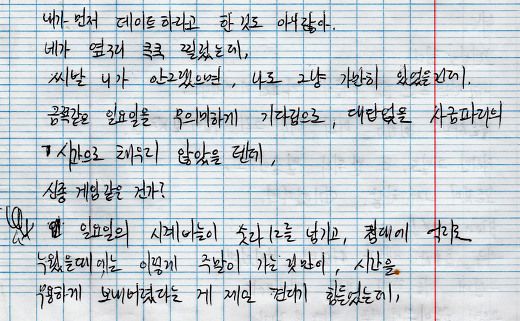 내가 먼저 데이트하라고 한 것도 아니잖아.
네가 옆구리 쿡쿡 찔렀는데,
씨발 니가 안그랬으면, 나도 그냥 가만히 있었을건데.
금쪽같은 일요일을 무의미하게 기다림으로, 대답없을 사금파리의
시간으로 채우리 않았을 텐데,
신종 게임같은 건가?
일요일의 시계바늘이 숫자 12를 넘기고, 침대에 억지로
누웠을때에는 이렇게 주말이 가는 것만이, 시간을
무용하게 보내버렸다는 게 제일 견디기 힘들었는데,